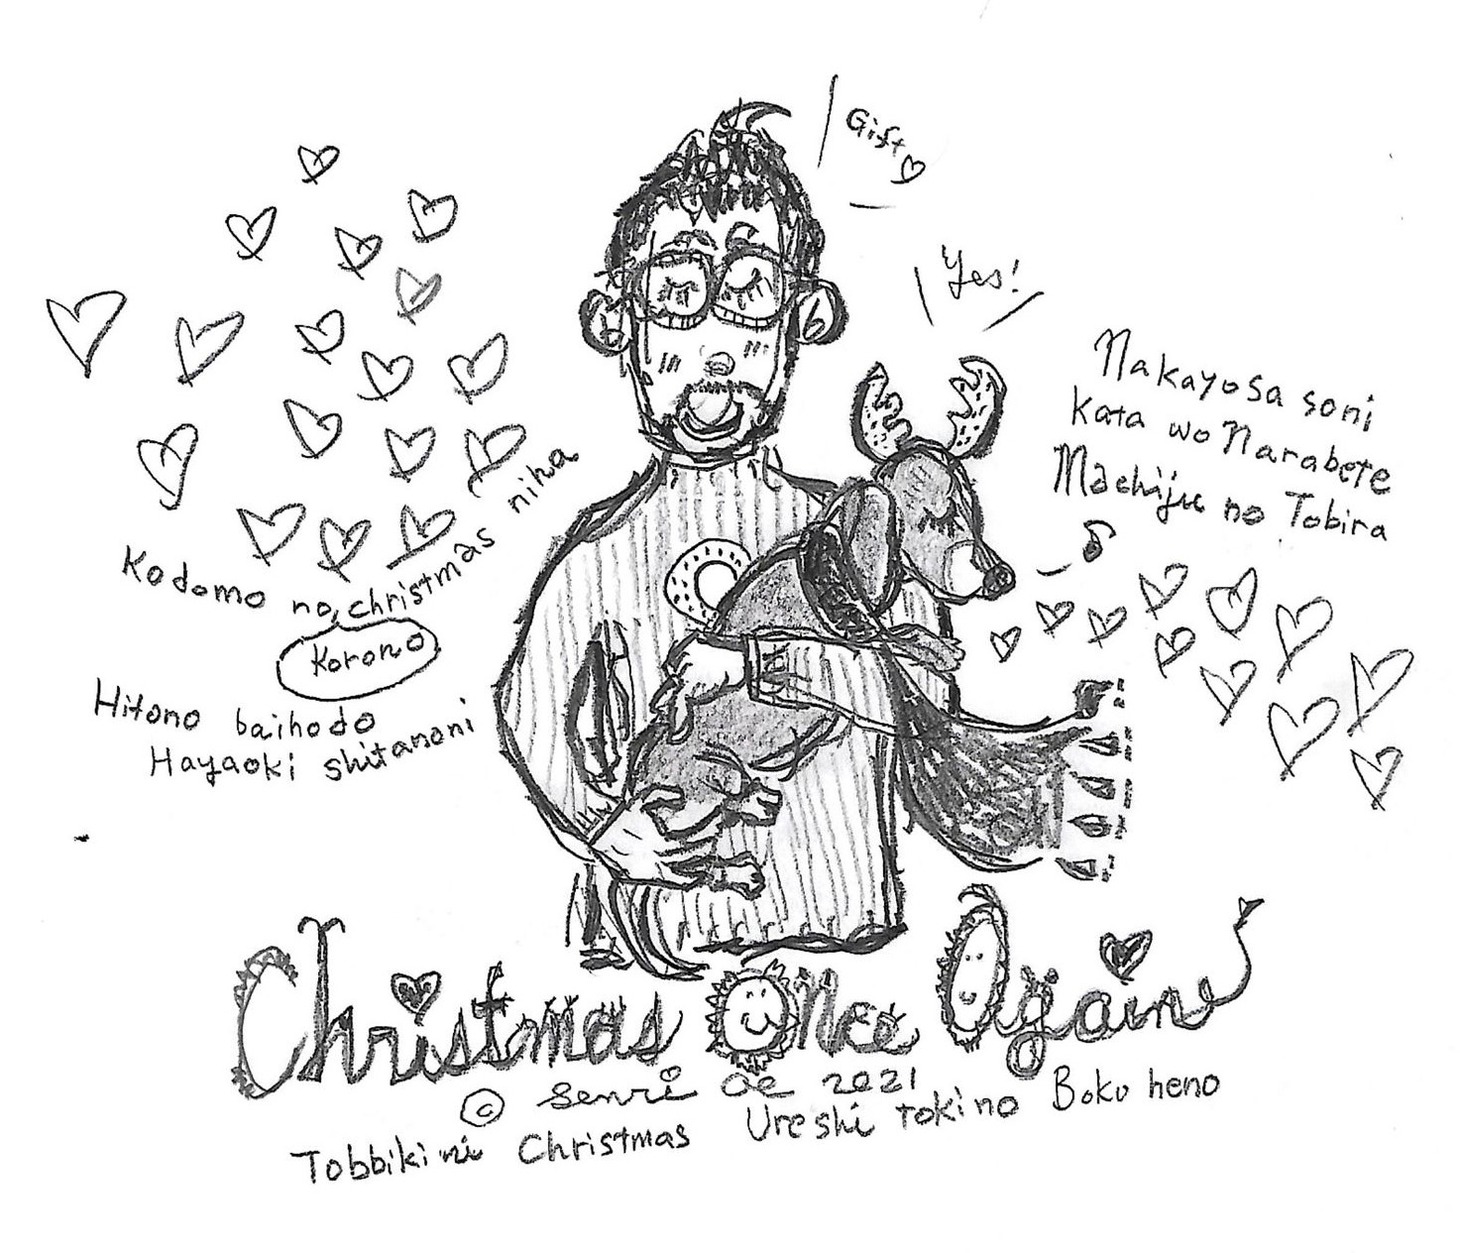 Gift
Yes!
Nakayosa soni
Kata wo Narabete
Machiju no Tobira
Kodomo no christmas niha
Korono
Hitono baihodo
Hayaoki shitanoni
Christmas Once Again
© Senri Oe 2021
Tobbikini Christmas Ureshi tokino Boku heno